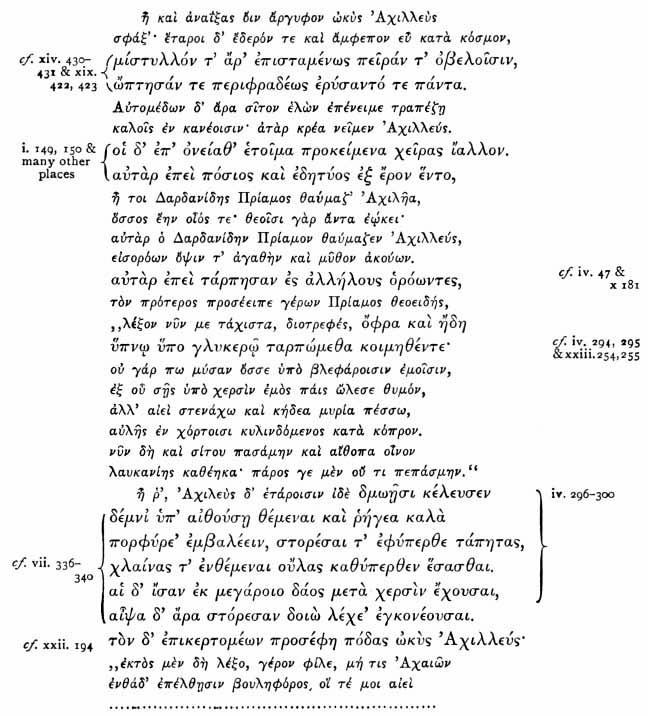 ἦ καὶ ἀναΐξας ὄιν ἄργυφον ὠκὺς Ἀχιλλεὺς
σφάξ’· ἕταροι δ’ ἔδερόν τε καὶ ἄμφεπον εὖ κατὰ κόσμον,
cf. xiv. 430–431 & xix. 422, 423 μίστυλλόν τ’ ἄρ’ ἐπισταμένως πεῖράν τ’ ὀβελοῖσιν,
ὤπτησάν τε περιφραδέως ἐρύσαντό τε πάντα.
Αὐτομέδων δ’ ἄρα σῖτον ἑλὼν ἐπένειμε τραπέζῃ
καλοῖς ἐν κανέοισιν· ἀτὰρ κρέα νεῖμεν Ἀχιλλεύς.
i. 149, 150 & many other places οἱ δ’ ἐπ’ ὀνείαθ’ ἑτοῖμα προκείμενα χεῖρας ἴαλλον.
αὐτὰρ ἐπεὶ πόσιος καὶ ἐδητύος ἐξ ἔρον ἕντο,
ἦ τοι Δαρδανίδης Πρίαμος θαύμαζ’ Ἀχιλῆα,
ὅσσος ἔην οἷός τε· θεοῖσι γὰρ ἄντα ἐῴκει·
αὐτὰρ ὁ Δαρδανίδην Πρίαμον θαύμαζεν Ἀχιλλεύς,
εἰσορόων ὄψιν τ’ ἀγαθὴν καὶ μῦθον ἀκούων.
αὐτὰρ ἐπεὶ τάρπησαν ἐς ἀλλήλους ὁρόωντες, cf. iv. 47 & x 181
τὸν πρότερος προσέειπε γέρων Πρίαμος θεοειδής,
„λέξον νῦν με τάχιστα, διοτρεφές, ὄφρα καὶ ἤδη
ὕπνῳ ὕπο γλυκερῷ ταρπώμεθα κοιμηθέντε· cf. iv. 294, 295 & xxiii. 254, 255
οὐ γάρ πω μύσαν ὄσσε ὑπὸ βλεφάροισιν ἐμοῖσιν,
ἐξ οὗ σῇς ὑπὸ χερσὶν ἐμὸς πάις ὤλεσε θυμόν,
ἀλλ’ αἰεὶ στενάχω καὶ κήδεα μυρία πέσσω,
αὐλῆς ἐν χόρτοισι κυλινδόμενος κατὰ κόπρον.
νῦν δὴ καὶ σίτου πασάμην καὶ αἴθοπα οἶνον
λαυκανίης καθέηκα· πάρος γε μὲν οὔ τι πεπάσμην.“
ἦ ῥ’, Ἀχιλεὺς δ’ ἑτάροισιν ἰδὲ δμῳῇσι κέλευσεν iv. 296–300
δέμνι’ ὑπ’ αἰθούσῃ θέμεναι καὶ ῥήγεα καλὰ
πορφύρε’ ἐμβαλέειν, στορέσαι τ’ ἐφύπερθε τάπητας,
cf. vii. 336–340 χλαίνας τ’ ἐνθέμεναι οὔλας καθύπερθεν ἕσασθαι.
αἱ δ’ ἴσαν ἐκ μεγάροιο δάος μετὰ χερσὶν ἔχουσαι,
αἶψα δ’ ἄρα στόρεσαν δοιὼ λέχε’ ἐγκονέουσαι.
cf. xxii. 194 τὸν δ’ ἐπικερτομέων προσέφη πόδας ὠκὺς Ἀχιλλεύς·
„ἐκτὸς μὲν δὴ λέξο, γέρον φίλε, μή τις Ἀχαιῶν
ἐνθάδ’ ἐπέλθῃσιν βουληφόρος, οἵ τέ μοι αἰεὶ